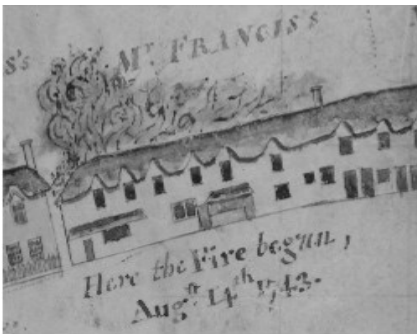 s's
Mr. FRANCIS's
Here the Fire begun,
Augst. 14th 1743.